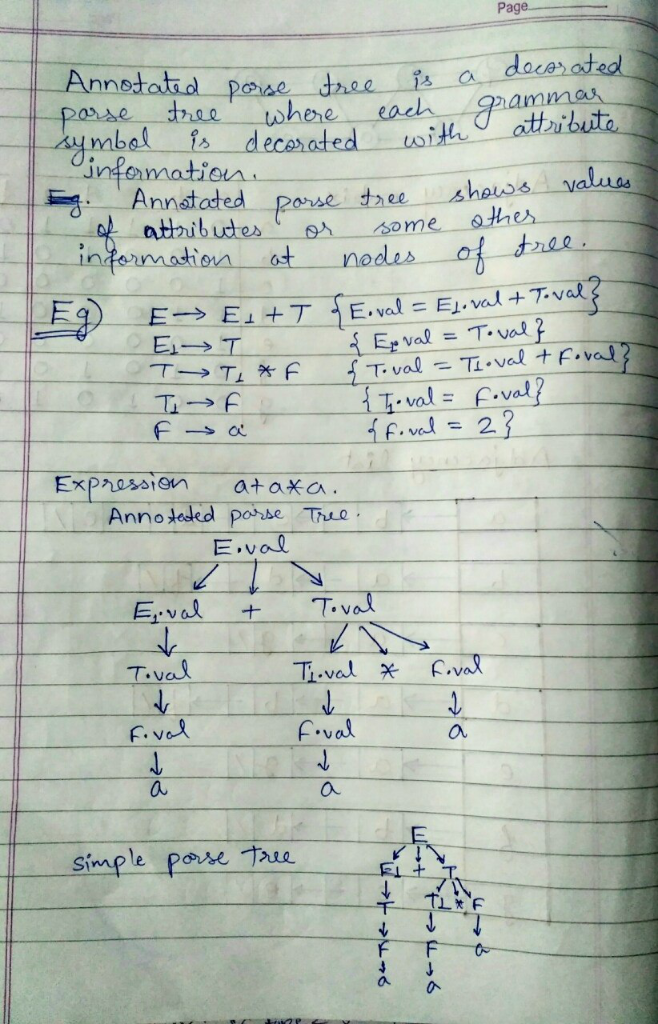 Page
Annotated parse tree is a decorated
parse tree where each grammar
symbol is decorated with attribute
information.
Eg. Annotated parse tree shows values
of attributes or some other
information at nodes of tree.
Eg) E → E1 + T {E.val = E1.val + T.val}
E1 → T { E1.val = T.val}
T → T1 * F { T.val = T1.val + F.val}
T1 → F { T1.val = F.val}
F → a { F.val = 2 }
Expression a+a*a.
Annotated parse Tree.
E.val
E1.val + T.val
T.val T1.val * F.val
F.val F.val a
a a
Simple parse Tree
E
E1 + T
T T1 * F
F F a
a a